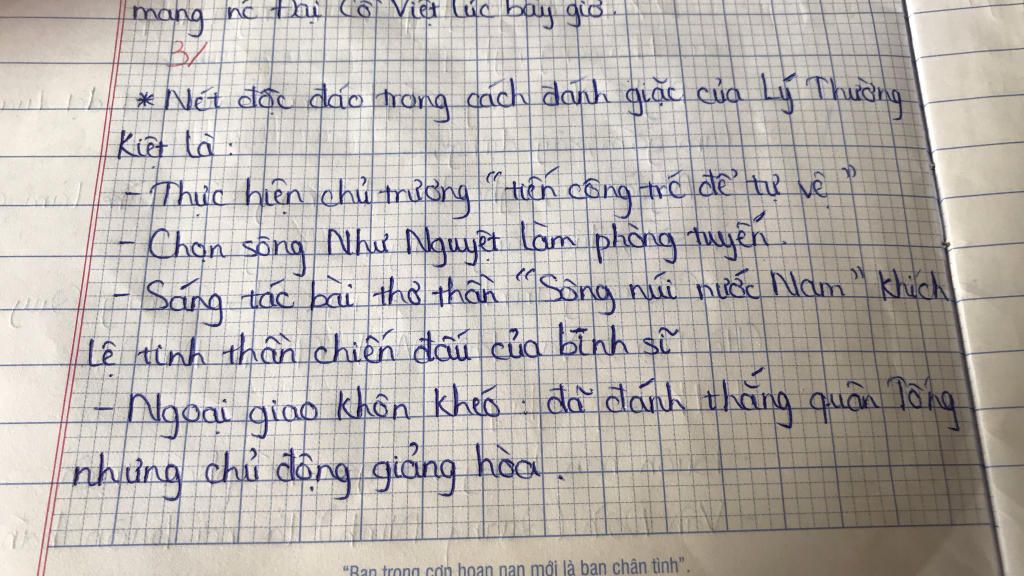 mang nc Đại Cồ Việt lúc bấy giờ.
3/
* Nét độc đáo trong cách đánh giặc của Lý Thường
Kiệt là :
- Thực hiện chủ trương "tiến công trc để tự vệ"
- Chọn sông Như Nguyệt làm phòng tuyến.
- Sáng tác bài thơ thần "Sông núi nước Nam" khích
lệ tinh thần chiến đấu của binh sĩ
- Ngoại giao khôn khéo : đã đánh thắng quân Tống
nhưng chủ động giảng hòa.
"Bạn trong cơn hoạn nạn mới là bạn chân tình".